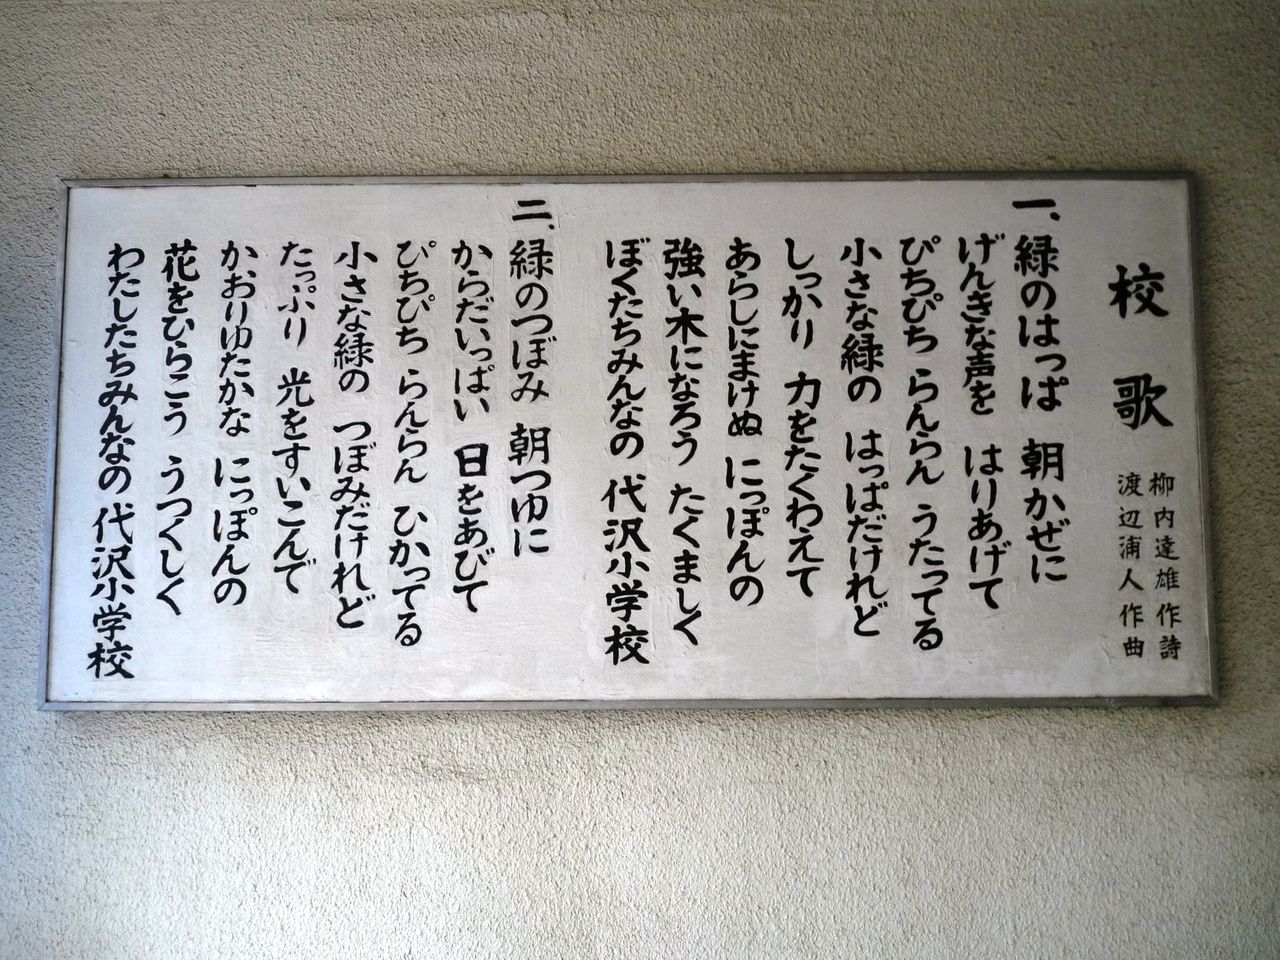 校歌
柳内達雄作詩
渡辺浦人作曲
一、緑のはっぱ 朝かぜに
げんきな声を はりあげて
ぴちぴち らんらん うたってる
小さな緑の はっぱだけれど
しっかり 力をたくわえて
あらしにまけぬ にっぽんの
強い木になろう たくましく
ぼくたちみんなの 代沢小学校
二、緑のつぼみ 朝つゆに
からだいっぱい 日をあびて
ぴちぴち らんらん ひかってる
小さな緑の つぼみだけれど
たっぷり 光をすいこんで
かおりゆたかな にっぽんの
花をひらこう うつくしく
わたしたちみんなの 代沢小学校